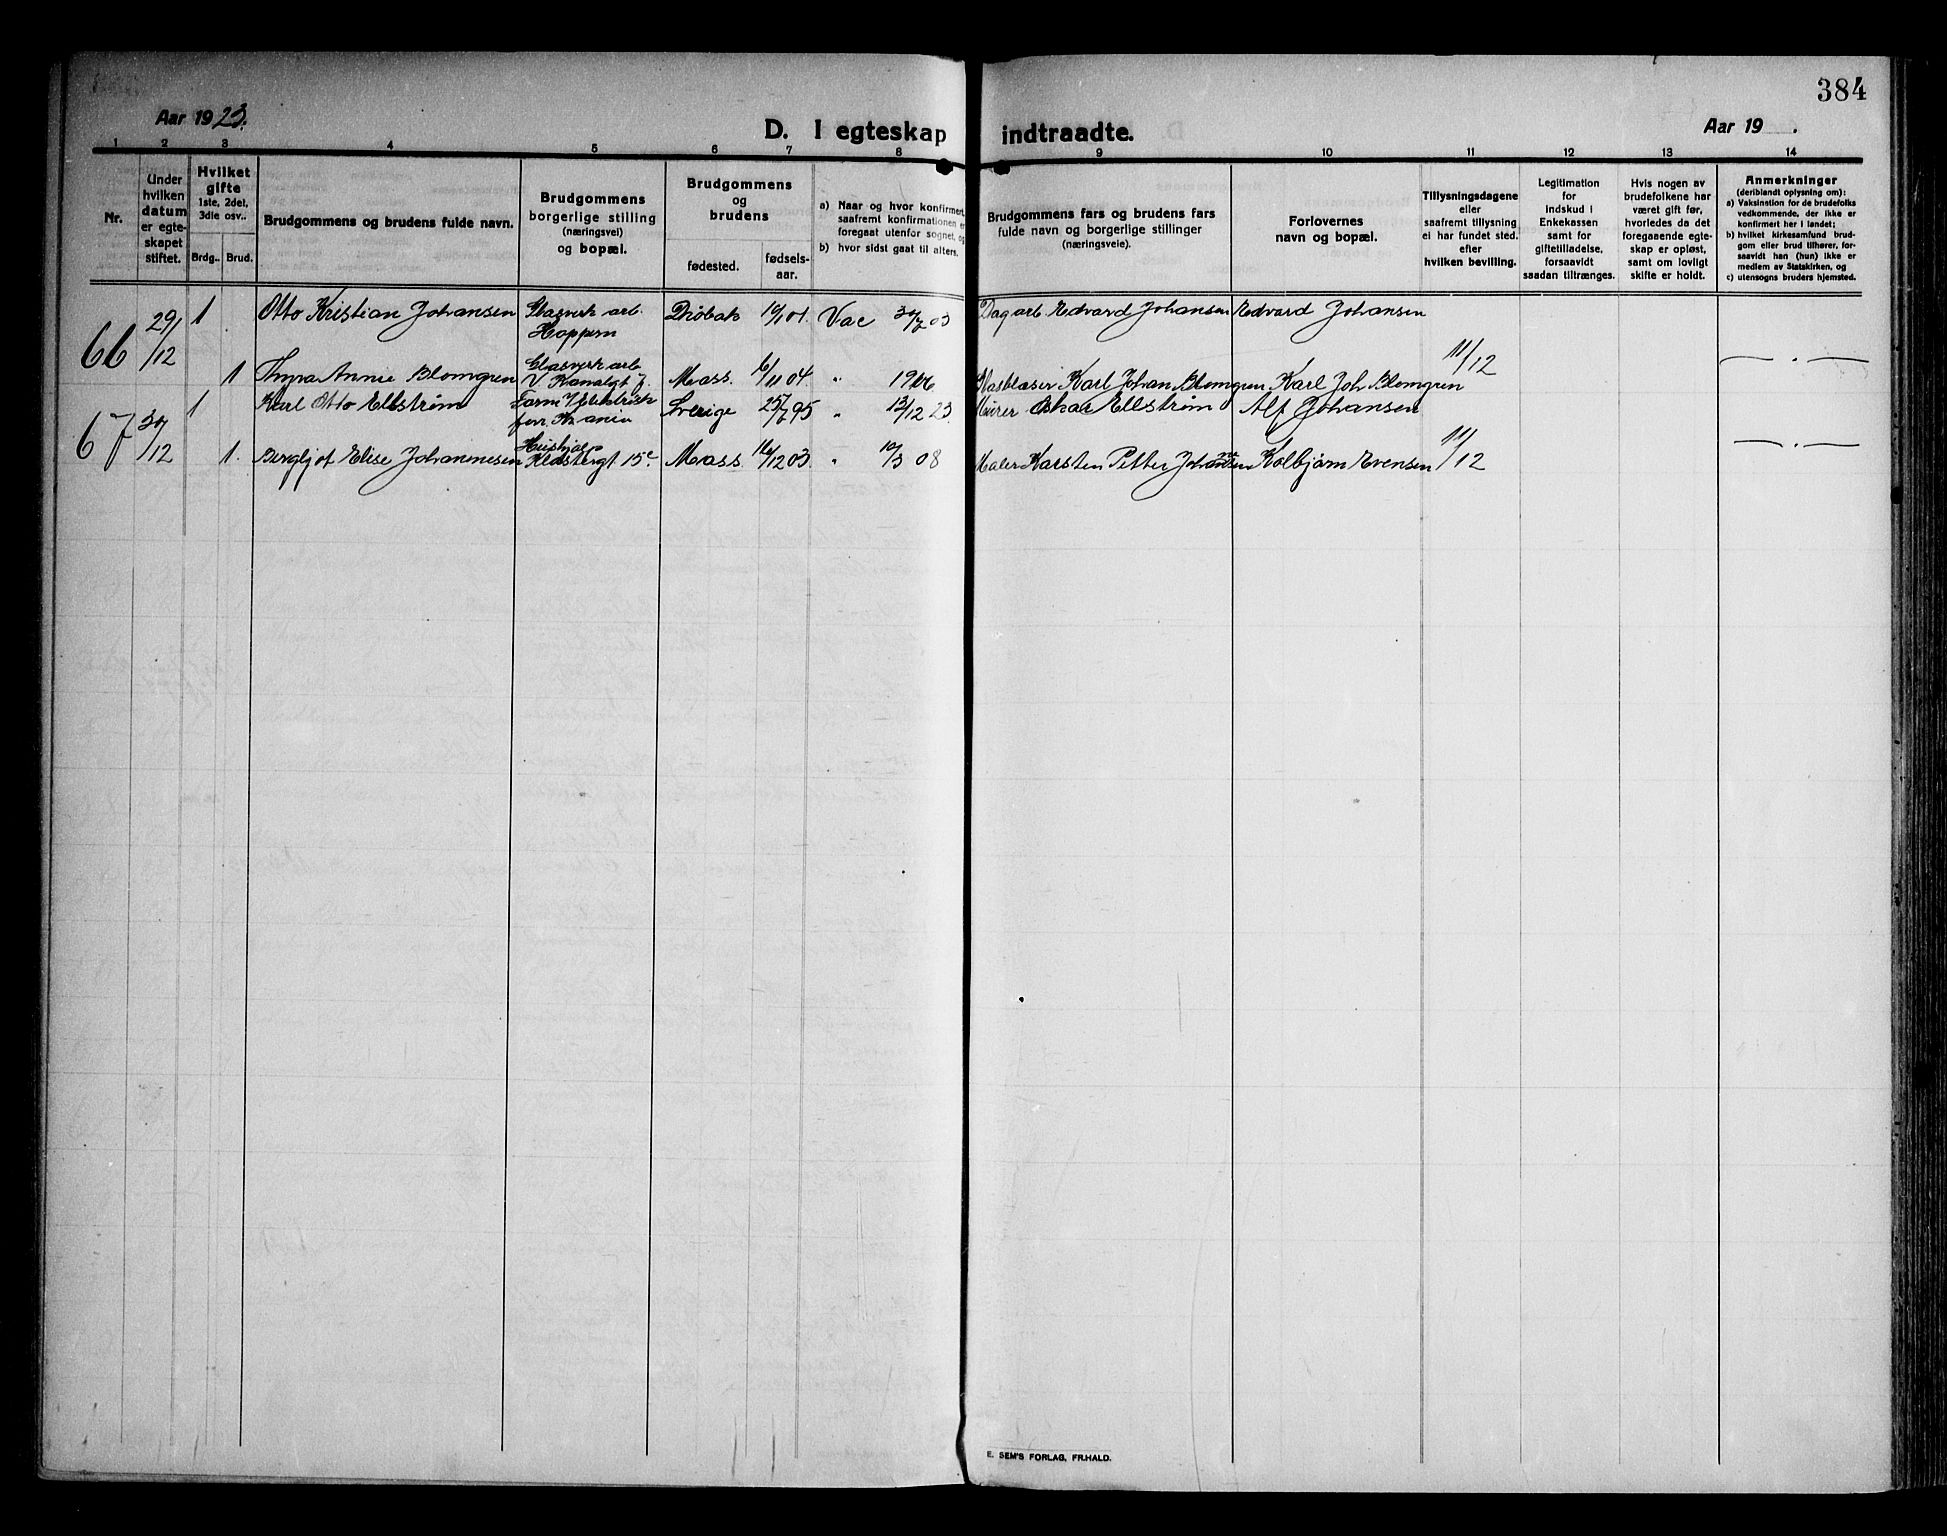 384
Aar 1923.
D. I egteskap indtraadte.
Aar 19 .
1 2 3 4 5 6 7 8 9 10 11 12 13 14
Nr.
Under
hvilken
datum
er egte-
skapet
stiftet.
Hvilket
gifte
1ste, 2det,
3die osv..
Brdg..
Brud.
Brudgommens og brudens fulde navn.
Brudgommens
borgerlige stilling
(næringsvei)
og bopæl.
Brudgommens
og
brudens
fødested.
fødsels-
aar.
a) Naar og hvor konfirmert,
saafremt konfirmationen er
foregaat utenfor sognet, og
b) hvor sidst gaat til alters.
Brudgommens fars og brudens fars
fulde navn og borgerlige stillinger
(næringsveie).
Forlovernes
navn og bopæl.
Tillysningsdagene
eller
saafremt tillysning
ei har fundet sted.
efter
hvilken bevilling.
Legitimation
for
indskud i
Enkekassen
samt for
giftetilladelse,
forsaavidt
saadan tiltrænges.
Hvis nogen av
brudefolkene har
været gift før,
hvorledes da det
foregaaende egte-
skap er opløst,
samt om lovligt
skifte er holdt.
Anmerkninger
(deriblandt oplysning om):
a) Vaksination for de brudefolks
vedkommende, der ikke er
konfirmert her i landet;
b) hvilket kirkesamfund brud-
gom eller brud tilhører, for-
saavidt han (hun) ikke er
medlem av Statskirken, og
c) utensogns bruders hjemsted.
66 29/12 1 Otto Kristian Johansen Glasverk arb. Drøbak 10/1 01 Vac 30/7 03 Dagarb Edvard Johansen Edvard Johansen
Hoppern
1 Thyra Annie Blomgren Glasverk arb Moss. 6/11 04 " 1906 Glasblæser Karl Johan Blomgren Karl Joh Blomgren 11/12 — . —
V. Kanalgt 7.
67 30/12 1 Karl Otto Ellstrøm Sverige 25/7 95 " 13/12 23 Murer Oskar Ellstrøm Alf Johansen
1. Bergljot Elise Johannesen Moss 16/12 03 " 10/3 08 Maler Karsten Petter Johansen Kolbjørn Evensen 11/12 — . —
15c.
E. SEM'S FORLAG, FR.HALD.